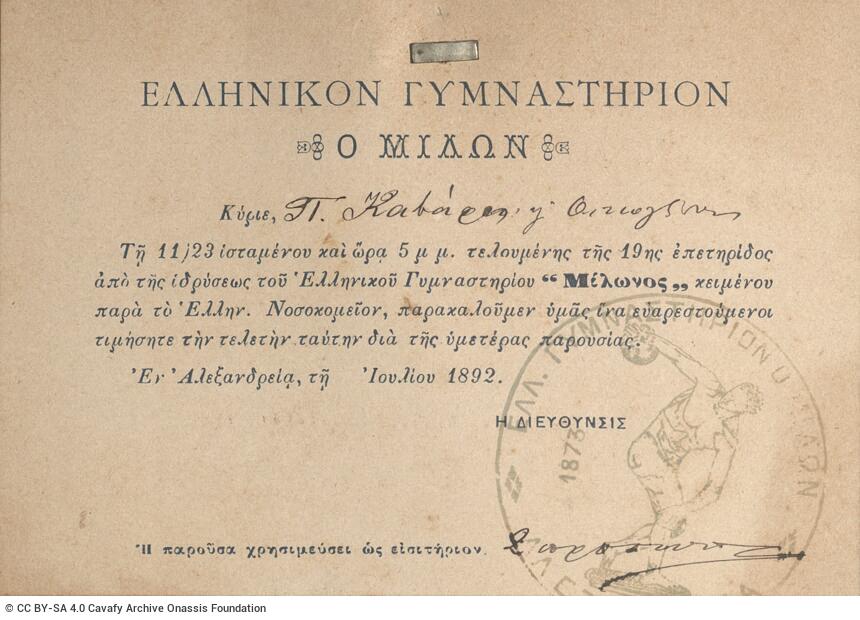 ΕΛΛΗΝΙΚΟΝ ΓΥΜΝΑΣΤΗΡΙΟΝ
Ο ΜΙΛΩΝ
Κύριε, Π. Καβάφην
Τῇ 11/23 ἱσταμένου καὶ ὥρᾳ 5 μ μ. τελουμένης τῆς 19ης ἐπετηρίδος
ἀπὸ τῆς ἱδρύσεως τοῦ Ἑλληνικοῦ Γυμναστηρίου “ Μίλωνος „ κειμένου
παρὰ τὸ Ἑλλην. Νοσοκομεῖον, παρακαλοῦμεν ὑμᾶς ἵνα εὐαρεστούμενοι
τιμήσητε τὴν τελετὴν ταύτην διὰ τῆς ὑμετέρας παρουσίας.
Ἐν Ἀλεξανδρείᾳ, τῇ Ἰουλίου 1892.
Η ΔΙΕΥΘΥΝΣΙΣ
ΕΛΛ. ΓΥΜΝΑΣΤΗΡΙΟΝ Ο ΜΙΛΩΝ
1873
Ἡ παροῦσα χρησιμεύσει ὡς εἰσιτήριον.
© CC BY-SA 4.0 Cavafy Archive Onassis Foundation